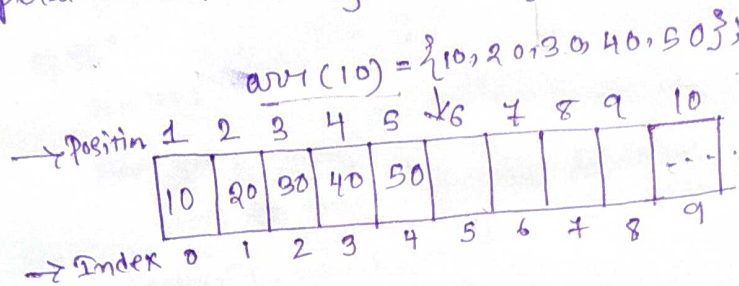 arr (10) = {10, 20, 30, 40, 50};
→ Positin 1 2 3 4 5 6 7 8 9 10
10 20 30 40 50 ...
→ Index 0 1 2 3 4 5 6 7 8 9